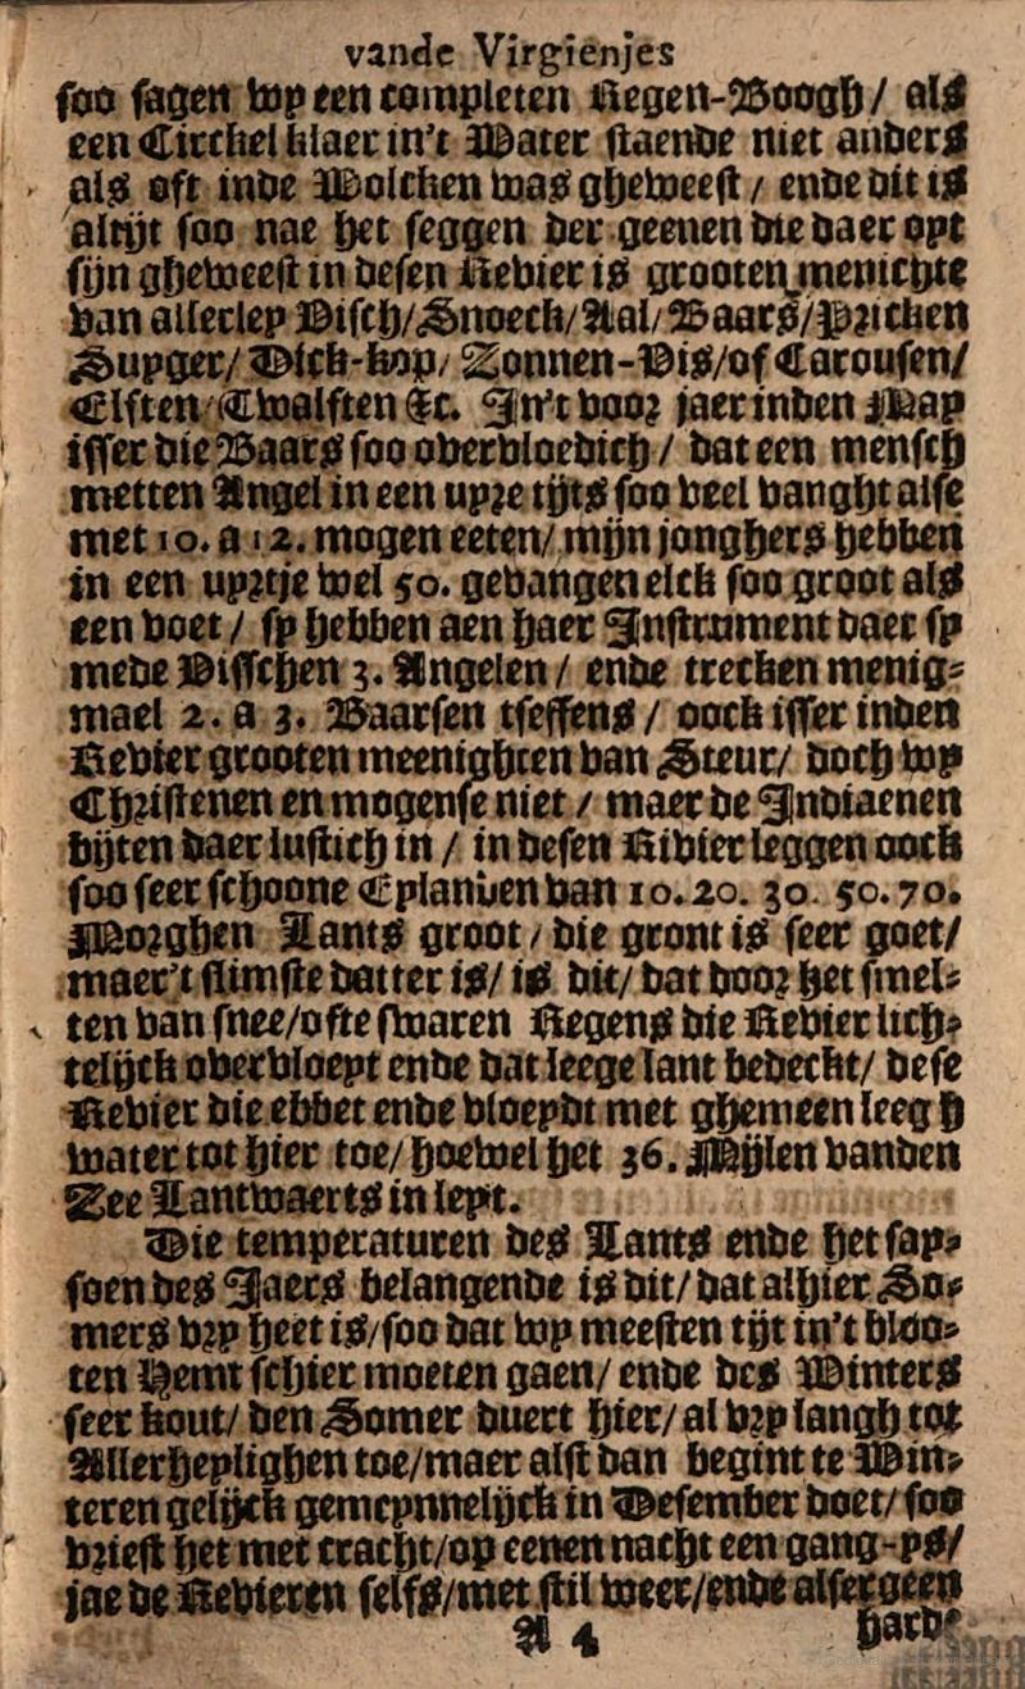 vande Virgienjes
soo sagen wy een completen Regen-Boogh / als
een Circkel klaer in't Water staende niet anders
als oft inde Wolcken was gheweest / ende dit is
altijt soo nae het seggen der geenen die daer opt
sijn gheweest in desen Revier is grooten menichte
van allerley Visch/Snoeck/Aal/Baars/Pricken
Suyger/Dick-kop/Zonnen-Vis/of Carousen/
Elften/Twalften &c. In't voor jaer inden May
isser die Baars soo overvloedich / dat een mensch
metten Angel in een uyre tijts soo veel vanght alse
met 10. a 12. mogen eeten/ mijn jonghers hebben
in een uyrtje wel 50. gevangen elck soo groot als
een voet / sy hebben aen haer Instrument daer sy
mede Visschen 3. Angelen / ende trecken menig-
mael 2. a 3. Baarsen tseffens / oock isser inden
Revier grooten meenighten van Steur/ doch wy
Christenen en mogense niet / maer de Indiaenen
bijten daer lustich in / in desen Rivier leggen oock
soo seer schoone Eylanden van 10. 20. 30. 50. 70.
Morghen Lants groot / die gront is seer goet/
maer't slimste datter is/ is dit/ dat door het smel-
ten van snee/ofte swaren Regens die Revier lich-
telijck overvloeyt ende dat leege lant bedeckt/ dese
Revier die ebbet ende vloeydt met ghemeen leegh
water tot hier toe/ hoewel het 36. Mijlen vanden
Zee Lantwaerts in leyt.
Die temperaturen des Lants ende het say-
soen des Jaers belangende is dit/ dat alhier So-
mers vry heet is/soo dat wy meesten tijt in't bloo-
ten Hemt schier moeten gaen/ ende des Winters
seer kout/ den Somer duert hier/ al vry langh tot
Allerheylighen toe/maer alst dan begint te Win-
teren gelijck gemeynnelijck in Desember doet/ soo
vriest het met cracht/op eenen nacht een gang-ys/
jae de Revieren selfs/met stil weer/ende alser geen
A 4 harde